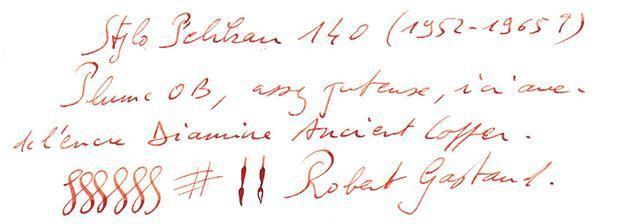 Stylo Pelikan 140 (1952-1965?)
Plume OB, assez juteuse, ici avec
de l'encre Diamine Ancient Copper.
# Robert Gastaud.